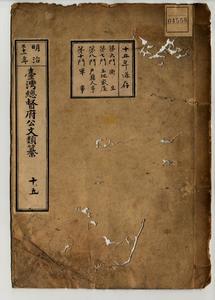 04558
十五年保存
第六門 衛生
第七門 土地家屋
第八門 戶籍人事
第十門 軍事
明治
臺灣總督府公文類纂
十五